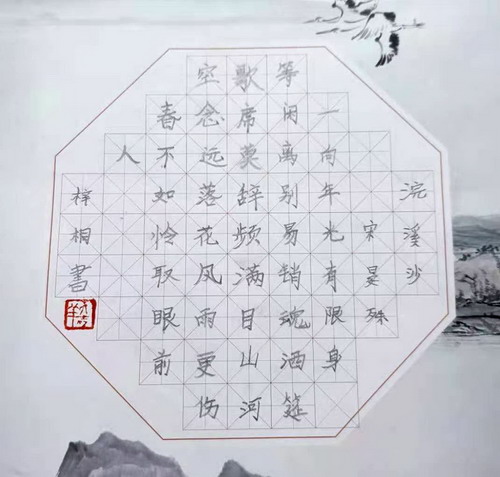 浣溪沙
宋晏殊
一向年光有限身
等闲离别易销魂酒筵
歌席莫辞频满目山河
空念远落花风雨更伤
春不如怜取眼前
人
梓桐書